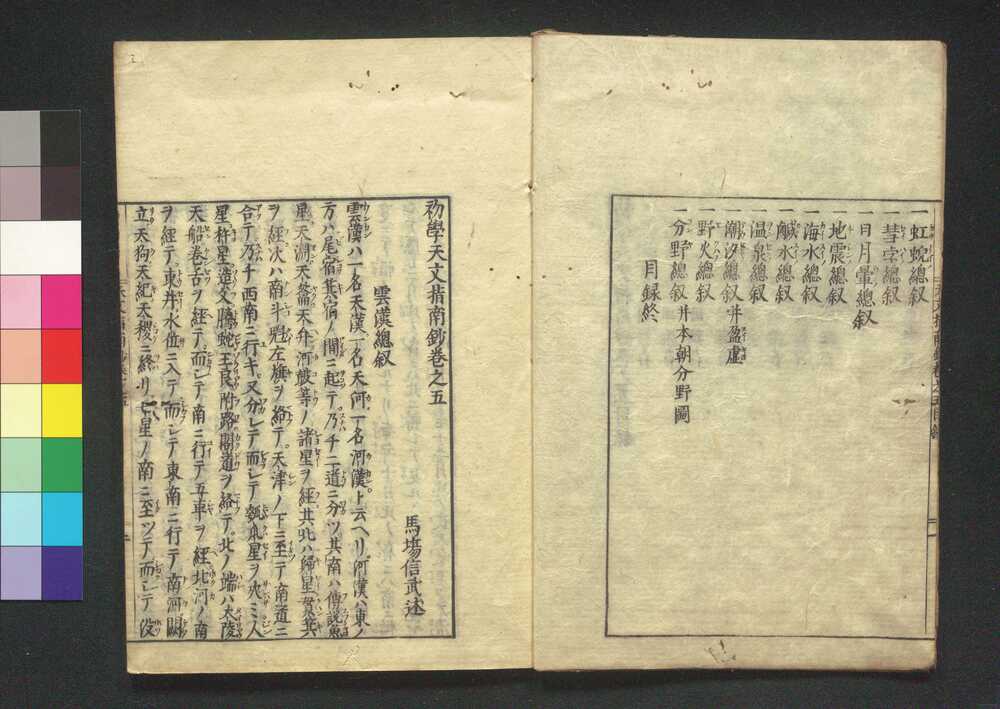 一虹蜺總叙
一彗孛總叙
一日月暈總叙
一地震總叙
一海水總叙
一鹹水總叙
一温泉總叙
一潮汐總叙并盈虚
一野火總叙
一分野總叙并本朝分野圖
目録終
初學天文指南鈔巻之五
馬場信武述
雲漢總叙
雲漢ハ一名天漢一名天河一名河漢ト云ヘリ河漢ハ東ノ
方ハ尾宿箕宿ノ間ニ起テ乃チ二道ニ分ツ其南ハ傳説魚
星天淵天籥天弁河皷等ノ諸星ヲ經其北ハ歸星貫箕
ヲ經次ハ南斗魁左旗ヲ絡テ天津ノ下ニ至テ南道ニ
合テ乃チ西南ニ行キ又分レテ而シテ瓠瓜星ヲ夾ミ人
星杵星造父螣蛇王良附路閣道ヲ絡テ北ノ端ハ大陵
天船巻舌ヲ經テ而シテ南ニ行テ五車ヲ經北河ノ南
ヲ經テ東井水位ニ入テ而シテ東南ニ行テ南河闕
立天狗天紀天稷ニ終リ七星ノ南ニ至ツテ而シテ没